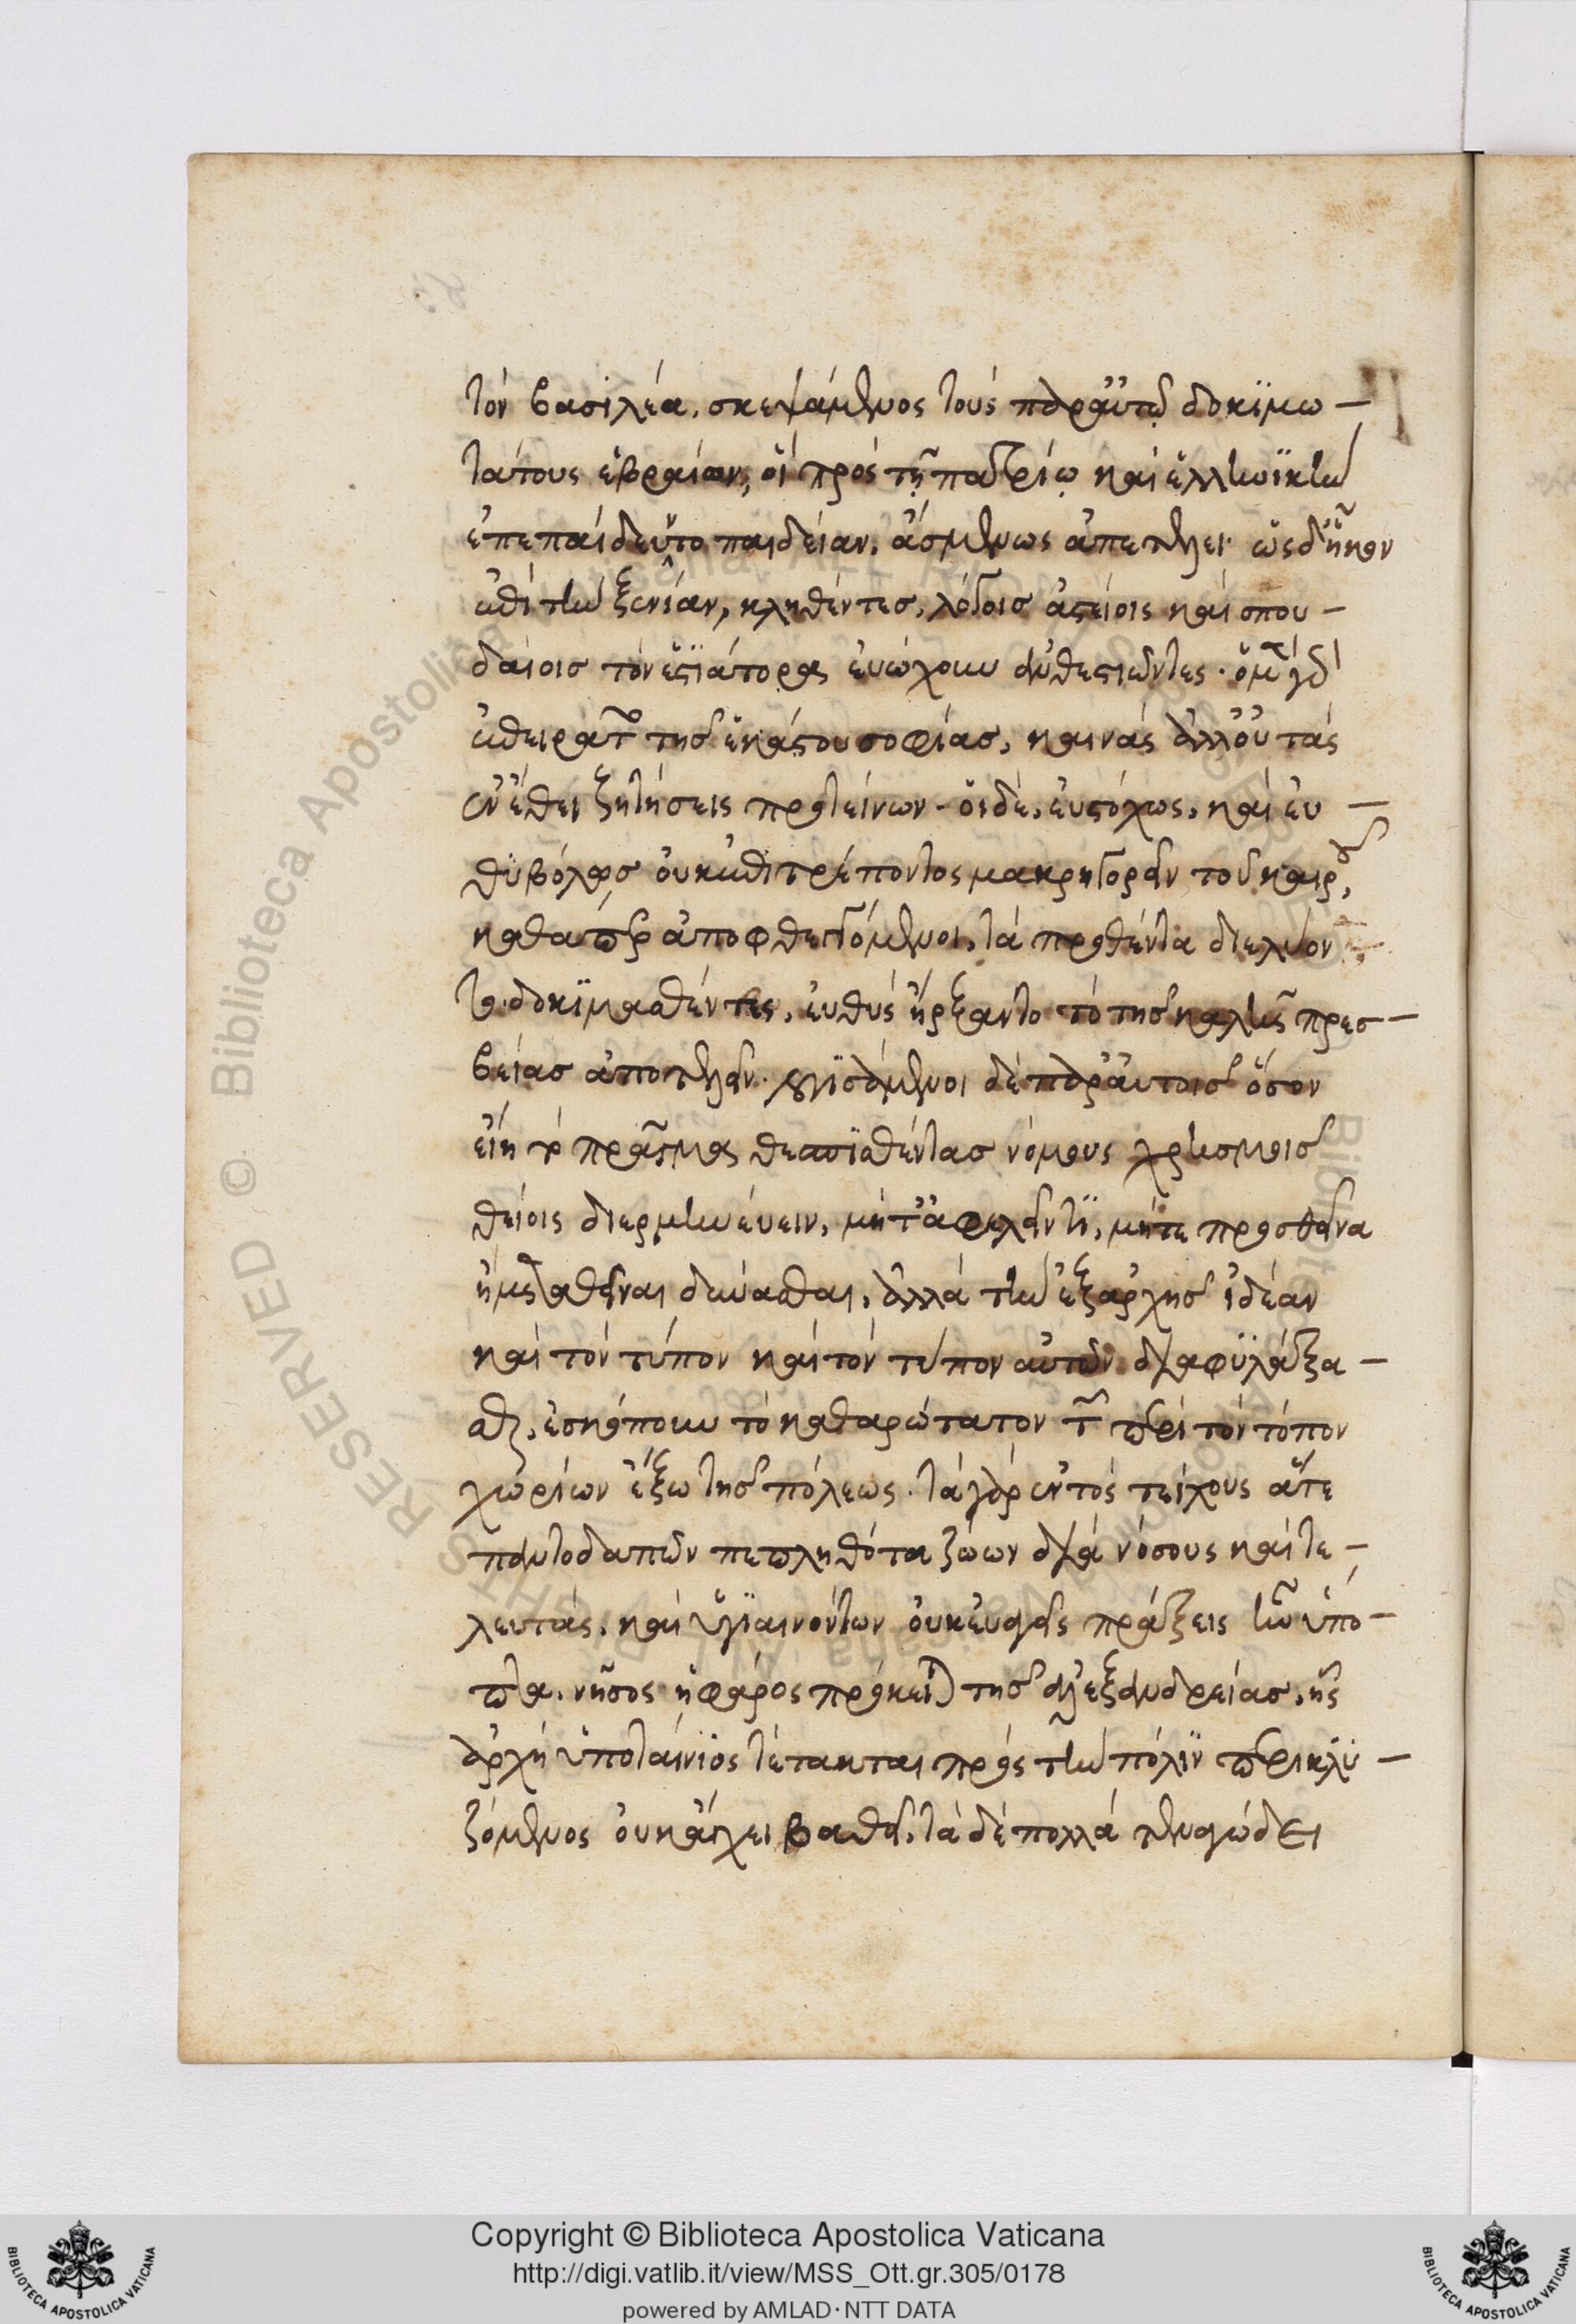 τὸν βασϊλέα. σκεψάμενος τοὺς παρ' αὐτῷ δοκϊμω –
τάτους ἑβραίους, οἳ πρὸς τῇ πατρίῳ καὶ ἑλληνϊκὴν
ἐπεπαίδευτο παιδείαν. ἀσμένως ἀποστέλλει· ὡς δ' ἧκον
ἐπὶ τὴν ξενίαν, κληθέντες, λόγοις ἀστείοις καὶ σπου –
δαίοις τὸν ἑστϊάτορα εὐώχουν ἀνθεστιῶντες. ὁ μὲν γὰρ
ἀπεπειρᾶτο τῆς ἑκάστου σοφίας, καινὰς ἀλλ' οὐ τὰς
ἐν ἔθει ζητήσεις προτείνων. οἱ δὲ, εὐστόχως, καὶ εὐ –
θϋβόλως οὐκ ἐπιτρέποντος μακρηγορεῖν τοῦ καιροῦ,
καθάπερ ἀποφθεγγόμενοι. τὰ προτεθέντα διελύον
το. δοκϊμασθέντες, εὐθὺς ἤρξαντο τὸ τῆς καλῆς πρεσ –
βείας ἀποτελεῖν. λογϊσάμενοι δὲ παρ' αὐτοῖς ὅσον
εἴη τὸ πρᾶγμα θεσπϊσθέντας νόμους χρησμοῖς
θείοις διερμηνεύειν, μήτ' ἀφελεῖν τϊ, μήτε προσθεῖναι
ἢ μεταθεῖναι δυναμένους, ἀλλὰ τὴν ἐξ ἀρχῆς ἰδέαν
καὶ τὸν τύπον καὶ τὸν τύπον αὐτῶν διαφϋλάξα –
σθαι, ἐσκόπουν τὸ καθαρώτατον τῶν περὶ τὸν τόπον
χωρίων ἔξω τῆς πόλεως. τὰ γὰρ ἐντὸς τείχους ἅτε
παντοδαπῶν πεπληθότα ζώων διὰ νόσους καὶ τε –
λευτὰς, καὶ ὑγϊαινόντων οὐκ εὐαγεῖς πράξεις ἦν ὕπο –
πτα. νῆσος ἡ φάρος πρόκειται τῆς ἀλεξανδρείας, ἧς
ἀρχὴν ὑποταίνϊος τέτακται πρὸς τὴν πόλϊν περικλϋ –
ζόμενος οὐκ ἀγχιβαθεῖ. τὰ δὲ πολλὰ τεναγώδει
Copyright © Biblioteca Apostolica Vaticana
http://digi.vatlib.it/view/MSS_Ott.gr.305/0178
powered by AMLAD·NTT DATA